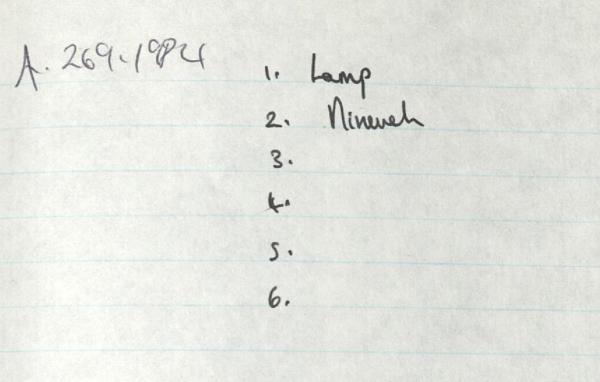 A. 269.1984
1. Lamp
2. Nineveh
3.
4.
5.
6.